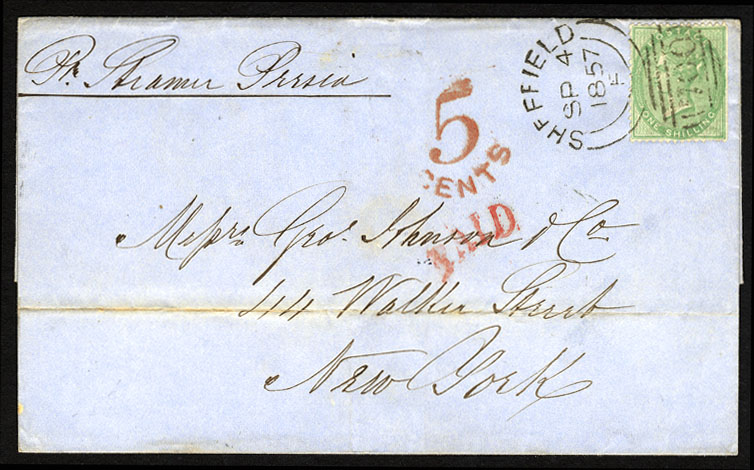 Pr. Steamer Persia
SHEFFIELD
SP 4
1857
E
ONE SHILLING
5
CENTS
PAID
Messrs. Geo. Johnson & Co
44 Walker Street
New York